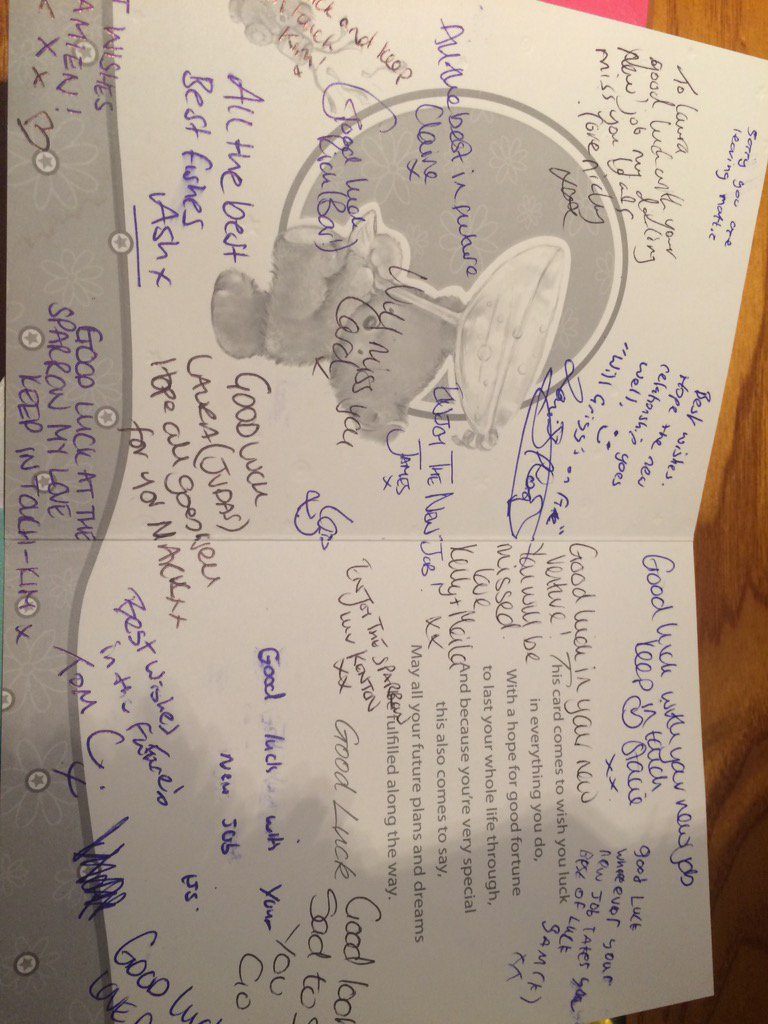 Sorry you are
leaving
To Laura
good luck with your
new job my darling
miss you loads
love nicky
xxxx
All the best in future
Claire
x
and keep
in touch
Kim!
x
Good luck
Rich (Bar)
All the best
Best fishes
Ash x
WISHES
x x
Best wishes.
Hope the new
relationship goes
well!
"Will Griss
Will miss you
Carl
x
ENJOY THE NEW JOB!
JAMES
x
GOOD LUCK
LAURA (JUDAS)
HOPE ALL GOES WELL
for yd
GOOD LUCK AT THE
SPARROW MY LOVE
KEEP IN TOCH - KIM x
Good luck with your new job
keep in tatch
Gracie
xx
good luck
wherever your
new job takes you
Best of luck
SAM (K)
xx
Good luck in your new
venture!
You will be
missed
love
Kelly + Maila
xx
This card comes to wish you luck
in everything you do,
With a hope for good fortune
to last your whole life through,
And because you're very special
this also comes to say,
May all your future plans and dreams
be fulfilled along the way.
ENJOY THE SPARROW
xx
Good Luck
Good luck with your
new job
Best wishes
in the future's
Tom C.
x
Good
Sad to
You
Go
GOOD
LOVE